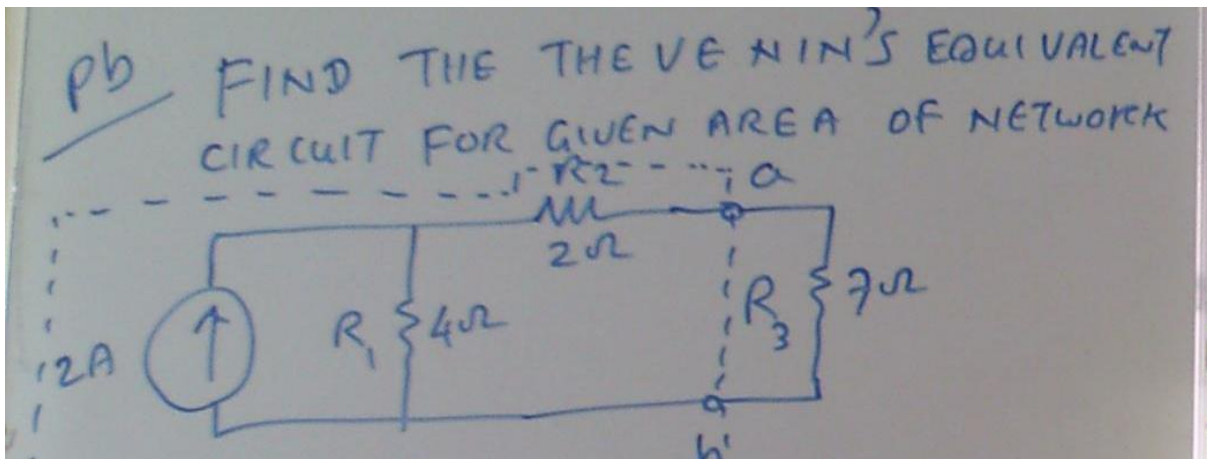 pb FIND THE THEVENIN'S EQUIVALENT
CIRCUIT FOR GIVEN AREA OF NETWORK
R2
a
2Ω
2A
R1
4Ω
R3
7Ω
b'